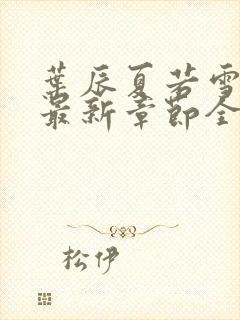 葉辰夏若雪
最新章節全
松伊